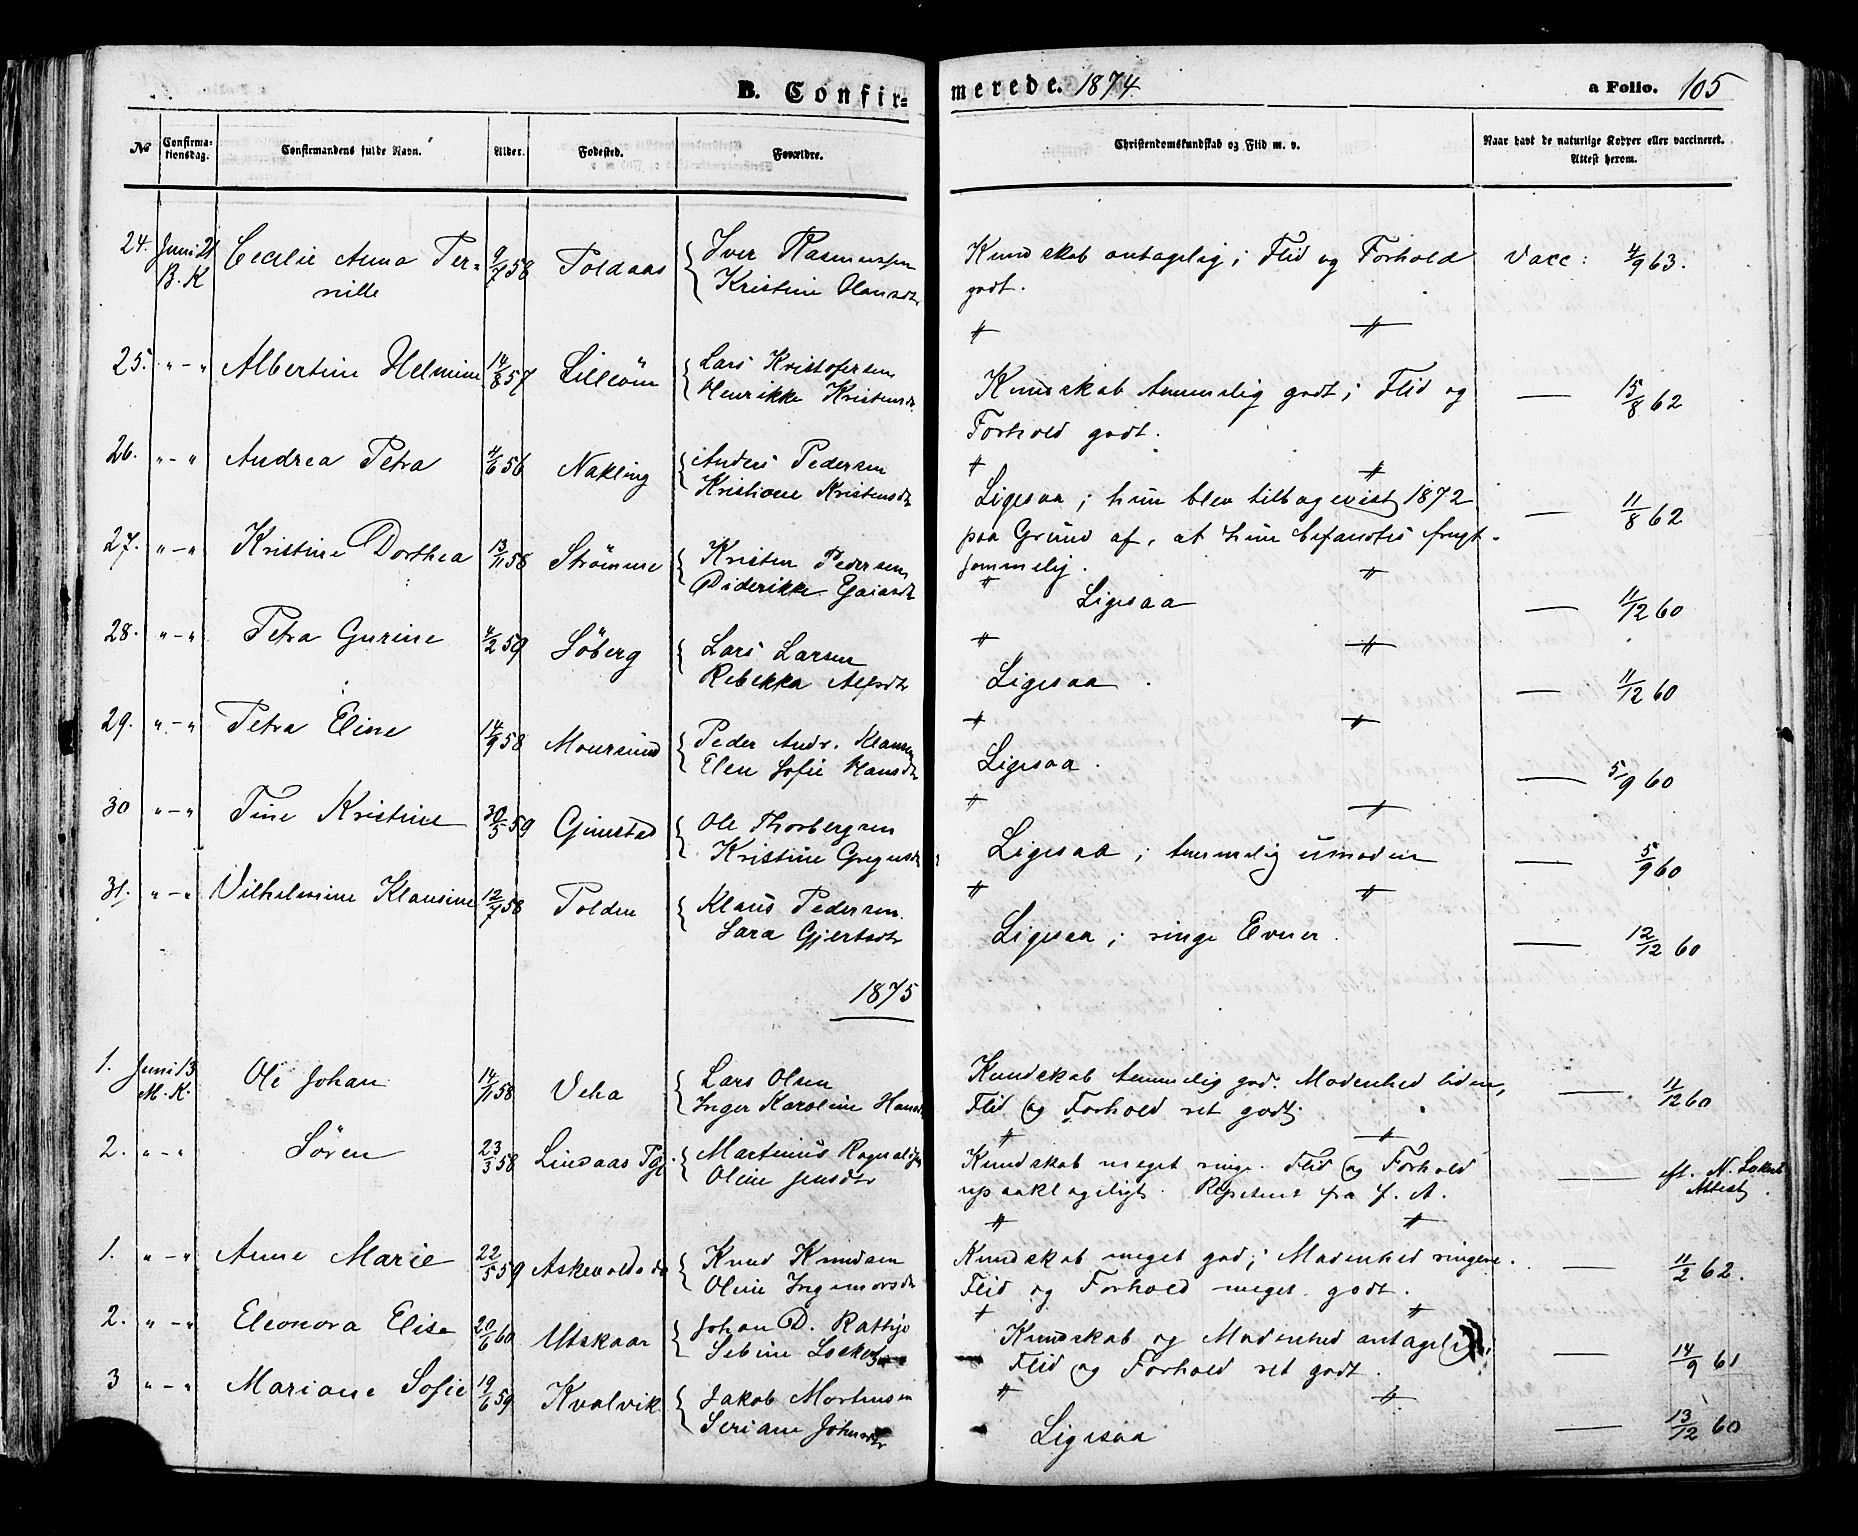 B. Confir-merede. 1874. a Folio. 105
No Confirma-tionsdag. Confirmandens fulde Navn. Alder. Fødested. Forældre. Christendomskundskab og Flid m. v. Naar havt de naturlige Kopper eller vaccineret. Attest herom.
24. Juni 21 Cecilie Anna Per- 9/7 58 Toldaas Iver Rasmussen Kundskab antagelig; Flid og Forhold Vacc: 4/9 63.
B. K nille Kristine Olausdtr godt.
25. " - " Albertine Helmine 14/8 57 Lilleön Lars Kristofersen Kundskab temmelig godt; Flid og — 15/8 62
Henrikke Kristensdr Forhold godt.
26. " - " Andrea Petra 4/6 56 Nakling Anders Pedersen Ligesaa; hun blev tilbagevist 1872 — 11/8 62
Kristiane Kristensdtr paa Grund af, at hun befandtes frugt-
27. " - " Kristine Dorthea 13/11 58 Strømme Kristen Pedersen sommelig.
Diderikke Ligesaa — 11/12 60
28. " - " Petra Gurine 4/2 59 Söberg Lars Larsen
Rebekka Alfsdtr Ligesaa. — 11/12 60
29. " - " Petra Eline 14/9 58 Moursund Peder Andr. Klausen Ligesaa. — 5/9 60
Elen Sofie Hansdtr
30 " - " Tine Kristine 30/5 59 Gjimstad Ole Thorbergsen Ligesaa; temmelig umoden — 5/9 60
Kristine Gregusdtr
31. " - " Vilhelmine Klausine 12/7 58 Polden Klaus Pedersen. Ligesaa; ringe Evner. — 12/12 60
Sara Gjertsdtr
1875
1. Juni 13 Ole Johan 14/11 58 Veha Lars Olsen Kundskab temmelig god. Modenhed liden, — 11/12 60
M. K. Inger Karoline Hansdtr Flid og Forhold ret godt.
2. " - " Sören 23/3 58 Lindaas Pgj. Martinus Kundskab meget ringe. Flid og Forhold — Attest.
Oline Jensdtr upaaklageligt. Repetent fra f. A.
1. " - " Anne Marie 22/5 59 Askevolds do Knud Knudsen Kundskab meget god; Modenhed ringere. — 11/2 62.
Oline Ingemorsdtr Flid og Forhold meget godt.
2. " - " Eleonora Elise 20/6 60 Utskaar Johan D. Rattsjø Kundskab og Modenhed antagelig; — 14/9 61
Sebine Flid og Forhold ret godt.
3 " - " Mariane Sofie 19/6 59 Kvalvik Jakob Mortensen
Seriane Johnsdtr Ligesaa — 13/12 60